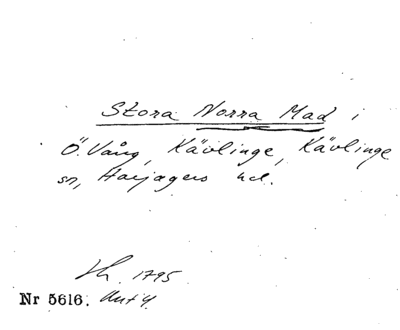 Stora Norra Mad i
Ö. Vång, Kävlinge, Kävlinge
sn, Harjagers hd.
1795
Nr 5616.